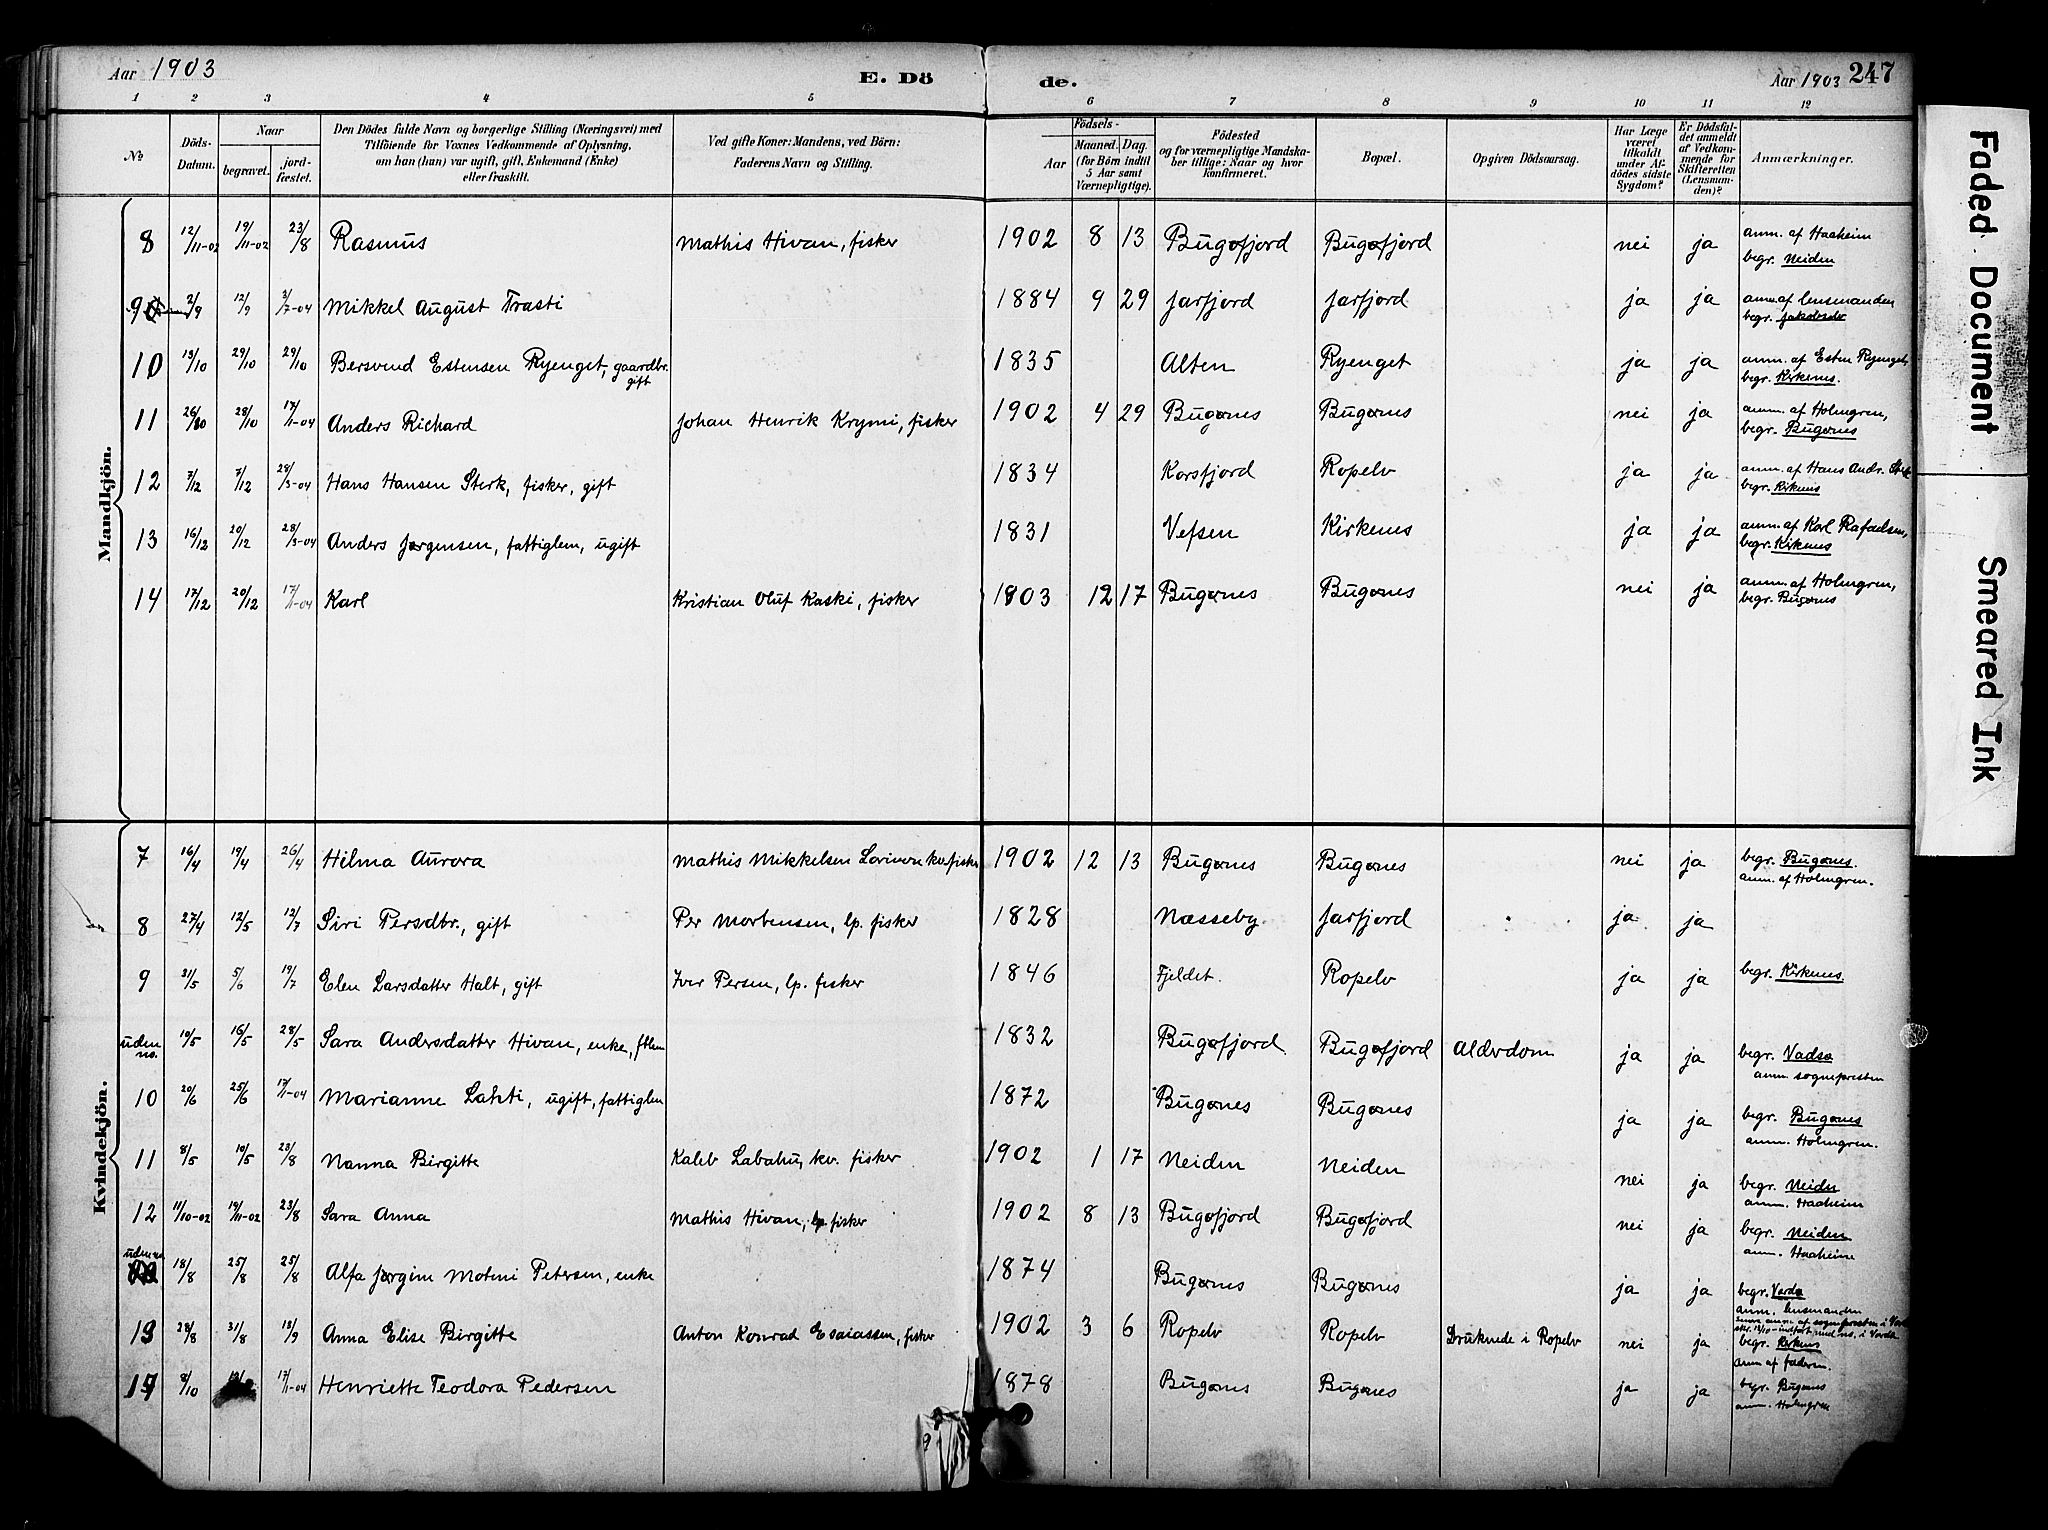 Aar 1903 E. Dö de. Aar 1903 247
1 2 3 4 5 6 7 8 9 10 11 12
No
Döds-Datum.
Naar
begravet.
jord-fæstet.
Den Dödes fulde Navn og borgerlige Stilling (Næringsvei) med
Tilföiende for Voxnes Vedkommende af Oplysning,
om han (hun) var ugift, gift, Enkemand (Enke)
eller fraskilt.
Ved gifte Koner: Mandens, ved Börn:
Faderens Navn og Stilling.
Födsels-
Aar
Maaned. Dag.
(for Börn indtil
5 Aar samt
Værnepligtige).
Födested
og for værnepligtige Mandska-
ber tillige: Naar og hvor
konfirmeret.
Bopæl.
Opgiven Dödsaarsag.
Har Læge
været
tilkaldt
under Af-
dödes sidste
Sygdom?
Er Dödsfal-
det anmeldt
af Vedkom-
mende for
Skifteretten
(Lensman-
den)?
Anmærkninger.
Mandkjön.
8 12/11-02 19/11-02 23/8 Rasmus Mathis Hivan, fisker 1902 8 13 Bugøfjord Bugøfjord nei ja anm. af Haaheim
begr. Neiden
9 2/9 12/9 3/7-04 Mikkel August Trasti 1884 9 29 Jarfjord Jarfjord ja ja anm. af lensmanden
begr. Jakobselv
10 13/10 29/10 29/10 Bersvend Estensen Ryenget, gaardbr. 1835 Alten Ryenget ja ja anm. af Esten Ryenget,
gift begr. Kirkenes.
11 26/10 28/10 17/1-04 Anders Richard Johan Henrik Krymi, fisker 1902 4 29 Bugønes Bugønes nei ja anm. af Holmgren,
begr. Bugønes
12 7/12 7/12 28/3-04 Hans Hansen Sterk, fisker, gift 1834 Korsfjord Ropelv ja ja anm. af Hans Andr. Sterk
begr. Kirkenes
13 16/12 20/12 28/3-04 Anders Jørgensen, fattiglem, ugift 1831 Vefsen Kirkenes ja ja anm. af Karl Rafaelsen,
begr. Kirkenes
14 17/12 20/12 17/1-04 Karl Kristian Oluf Kaski, fisker 1903 12 17 Bugønes Bugønes nei ja anm. af Holmgren,
begr. Bugønes
Kvindekjön.
7 16/4 19/4 26/4 Hilma Aurora Mathis Mikkelsen Lorivon kv. fisker 1902 12 13 Bugønes Bugønes nei ja begr. Bugønes.
anm. af Holmgren.
8 27/4 12/5 12/7 Siri Persdbr., gift Per Mortensen, lp. fisker 1828 Næsseby Jarfjord ja ja
9 31/5 5/6 19/7 Elen Larsdatter Halt, gift Iver Persen, lp. fisker 1846 Fjeldet. Ropelv ja ja begr. Kirkenes.
uden no. 10/5 16/5 28/5 Sara Andersdatter Hivan, enke, ftlem 1832 Bugøfjord Bugøfjord Alderdom ja ja begr. Vadsø
anm. sognepresten
10 20/6 25/6 17/1-04 Marianne Lahti, ugift, fattiglem 1872 Bugønes Bugønes ja ja begr. Bugønes
anm. Holmgren.
11 8/5 10/5 23/8 Nanna Birgitte Kaleb Labahu, kv. fisker 1902 1 17 Neiden Neiden nei ja begr. Neiden
anm. Haaheim
12 11/10-02 19/11-02 23/8 Sara Anna Mathis Hivan, lp fisker 1902 8 13 Bugøfjord Bugøfjord nei ja begr. Neiden
anm. Haaheim
uden no. 18/8 25/8 25/8 Alfa Jørgine Motine Petersen, enke 1874 Bugønes Bugønes ja ja begr. Vardø
anm. lensmanden
13 28/8 31/8 13/9 Anna Elise Birgitte Anton Konrad Esaiassen, fisker 1902 3 6 Ropelv Ropelv Druknede i Ropelv nei ja begr. Kirkenes
anm af faderen.
14 8/10 17/1-04 Henriette Teodora Pedersen 1878 Bugønes Bugønes ja ja begr. Bugønes
anm. Holmgren
Faded Document
Smeared Ink